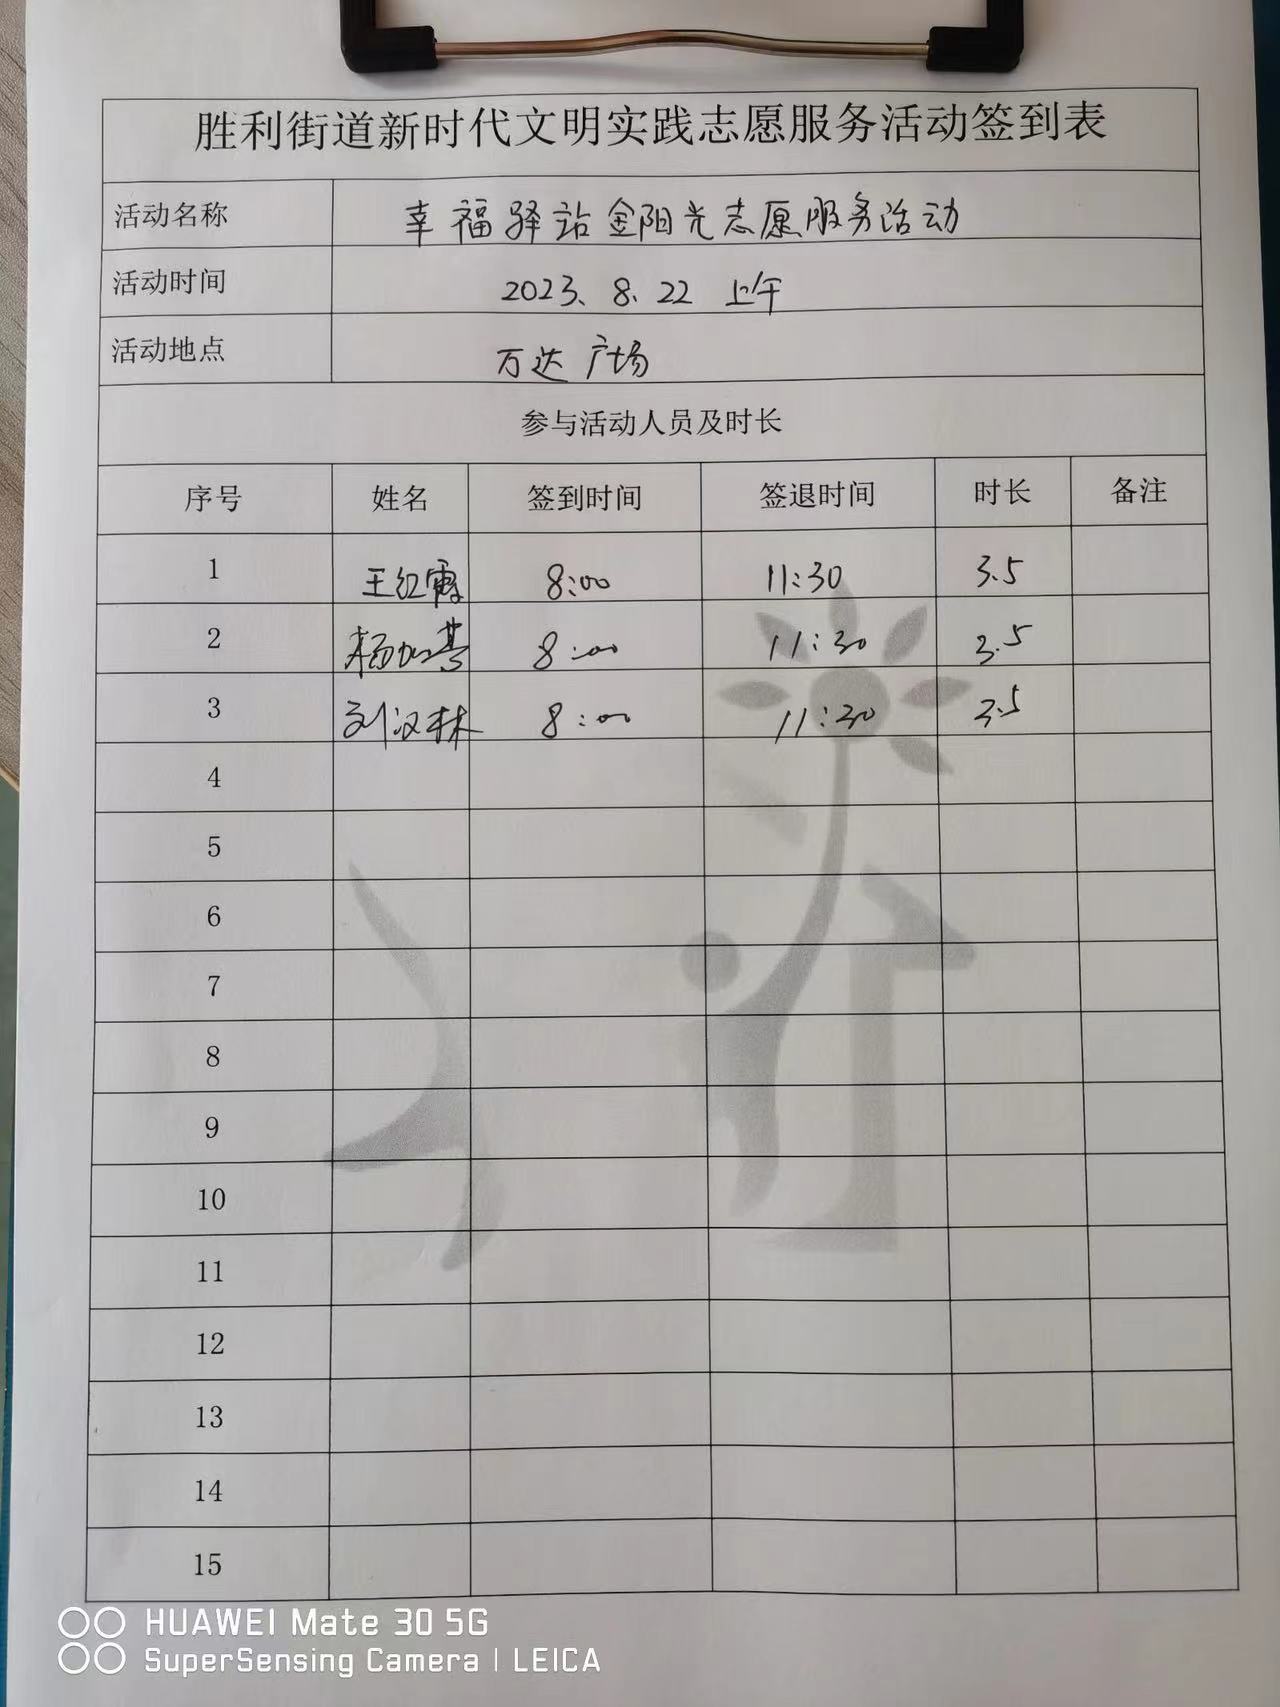 胜利街道新时代文明实践志愿服务活动签到表
活动名称 幸福驿站金阳光志愿服务活动
活动时间 2023、8、22 上午
活动地点 万达广场
参与活动人员及时长
序号 姓名 签到时间 签退时间 时长 备注
1 王红霞 8:00 11:30 3.5
2 杨 8:00 11:30 3.5
3 刘汉林 8:00 11:30 3.5
4
5
6
7
8
9
10
11
12
13
14
15
HUAWEI Mate 30 5G
SuperSensing Camera | LEICA